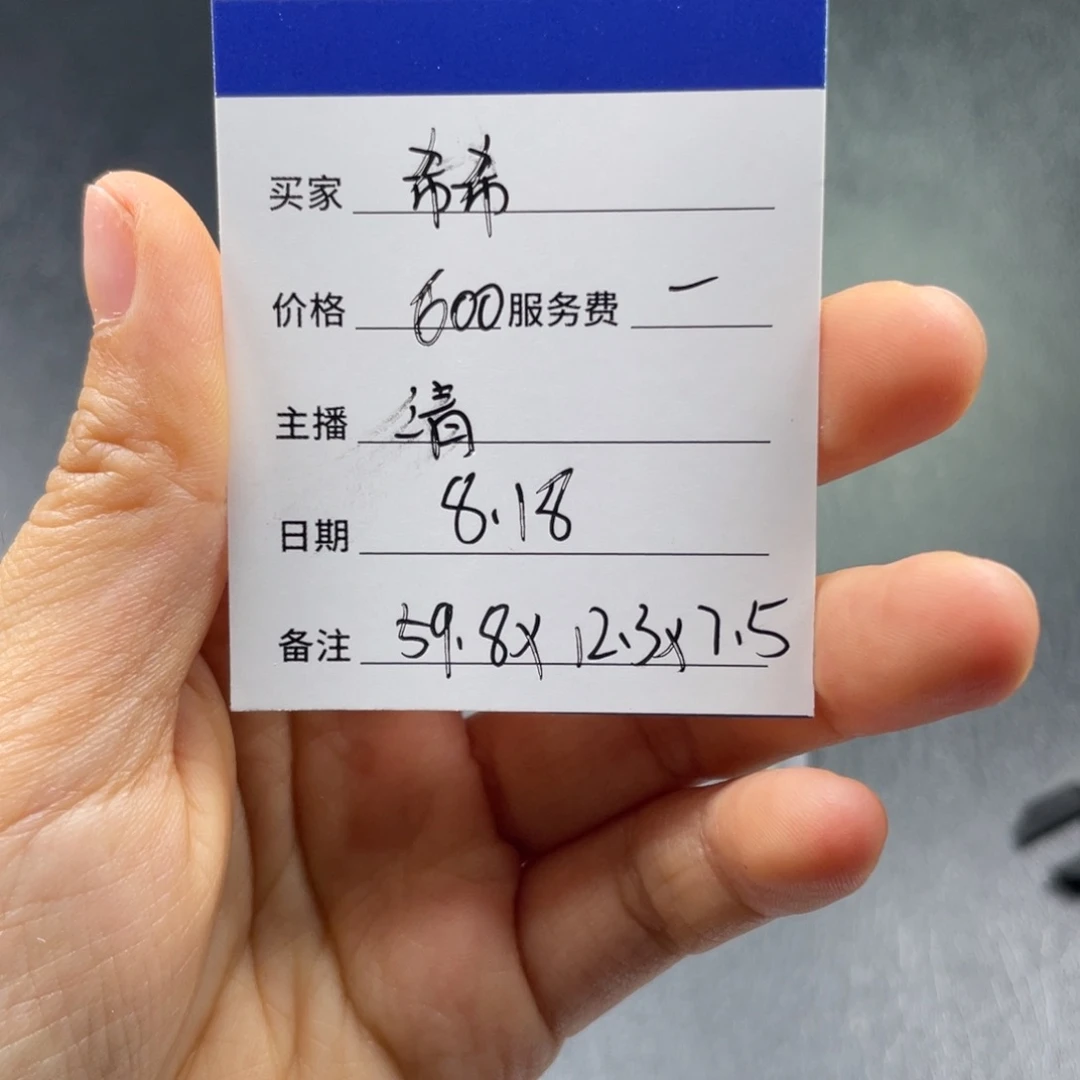 买家 希希
价格 600 服务费 一
主播 清
日期 8.18
备注 59.8x 12.3x7.5